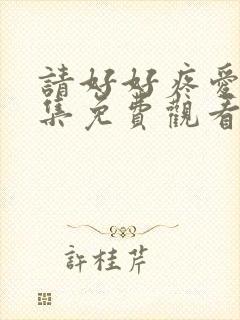 請好好疼愛
集免費觀看
許桂芹